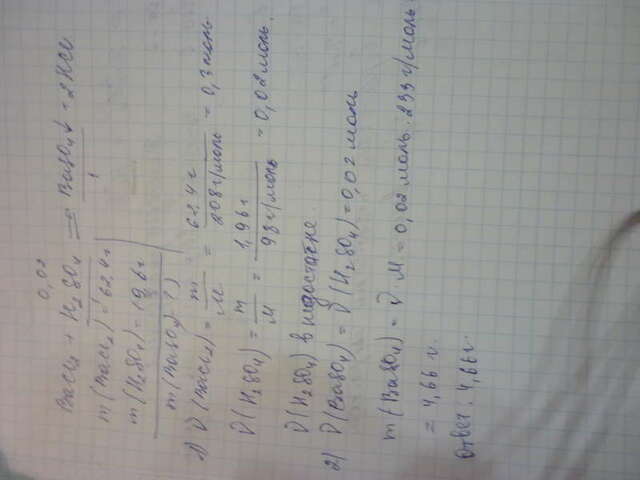 0,02
BaCl₂ + H₂SO₄ = BaSO₄↓ + 2HCl
1
m(BaCl₂) = 62,4 г
m(H₂SO₄) = 1,96 г
m(BaSO₄) - ?
1) ν(BaCl₂) = m/M = 62,4 г / 208 г/моль = 0,3 моль
ν(H₂SO₄) = m/M = 1,96 г / 98 г/моль = 0,02 моль.
ν(H₂SO₄) в недостатке
2) ν(BaSO₄) = ν(H₂SO₄) = 0,02 моль
m(BaSO₄) = ν · M = 0,02 моль · 233 г/моль
= 4,66 г.
Ответ: 4,66 г.